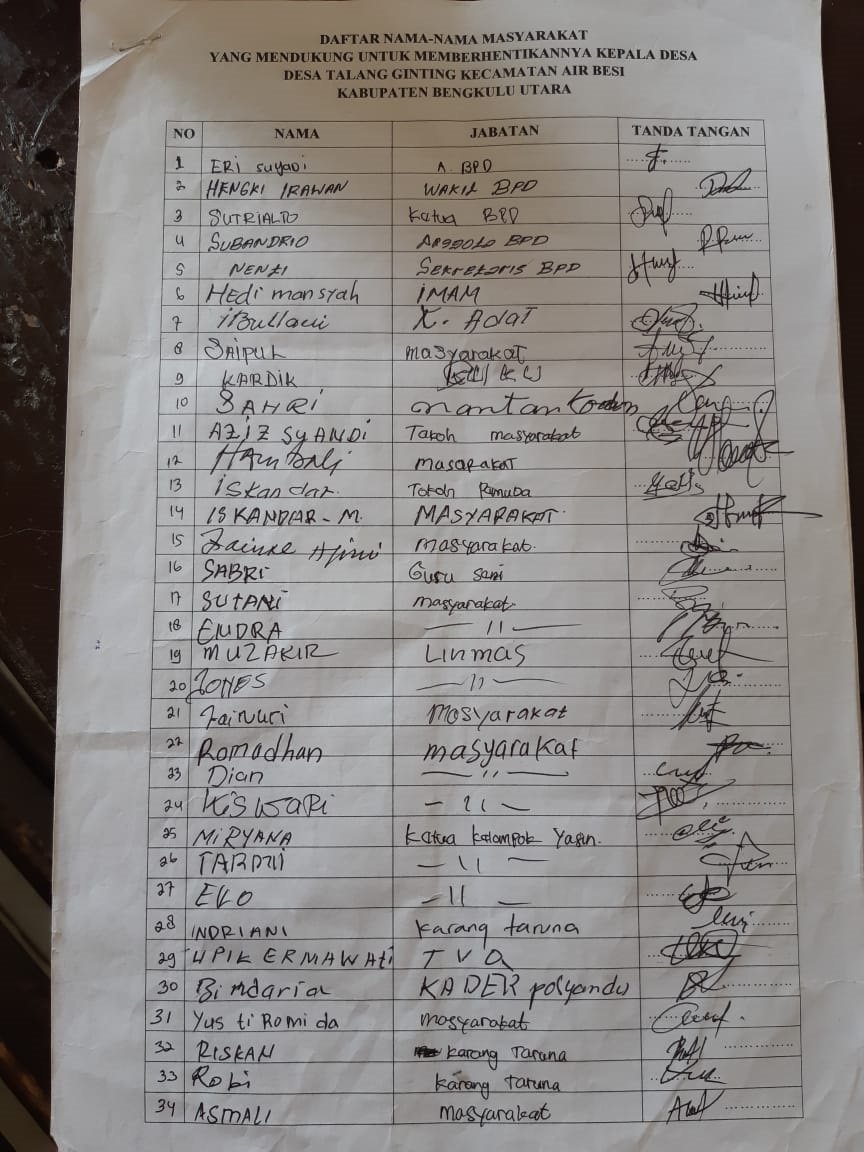 DAFTAR NAMA-NAMA MASYARAKAT
YANG MENDUKUNG UNTUK MEMBERHENTIKANNYA KEPALA DESA
DESA TALANG GINTING KECAMATAN AIR BESI
KABUPATEN BENGKULU UTARA
NO NAMA JABATAN TANDA TANGAN
1 ERI SUYADI A. BPD
2 HENGKI IRAWAN WAKIL BPD
3 SUTRIALTO Katua BPD
4 SUBANDRIO Anggoto BPD
5 NENTI Sekretaris BPD
6 Hedi mansyah IMAM
7 K. Adat
8 SAIPUL masyarakat
9 KARDIK
10 SAHRI mantan
11 AZIZ SYANDI Tokoh masyarakat
12 Hambali masarakat
13 iskandar. Tokoh Pemuda
14 ISKANDAR-M. MASYARAKAT
15 masyarakat.
16 SABRI Guru seni
17 SUTANI masyarakat
18 ENDRA — 11 —
19 MUZAKIR Linmas
20 JONES — 11 —
21 Zainuri Masyarakat
22 Romadhan masyarakat
23 Dian — 11 —
24 KiSWARI — 11 —
25 MIRYANA Katua Kelompok Yasin.
26 — 11 —
27 EKO — 11 —
28 INDRIANI Karang taruna
29 UPIK ERMAWATi
30 Bimdaria KADER polyandu
31 Yus ti Romi da masyarakat
32 RISKAN karang Taruna
33 Robi karang taruna
34 ASMALI masyarakat